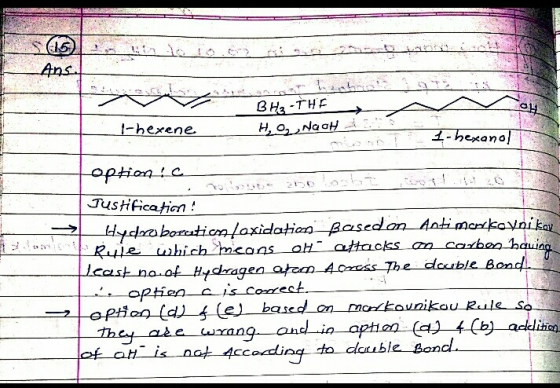 (15)
Ans.
BH3-THF
H2O2, NaOH
OH
1-hexene
1-hexanol
option : C
Justification :
→ Hydroboration/oxidation Based on Antimarkovnikov
Rule which means OH⁻ attacks on carbon having
least no. of Hydrogen atom Across The double Bond.
∴ option c is correct.
→ option (d) & (e) based on markovnikov Rule so
They are wrong. and in option (a) & (b) addition
of OH⁻ is not According to double Bond.